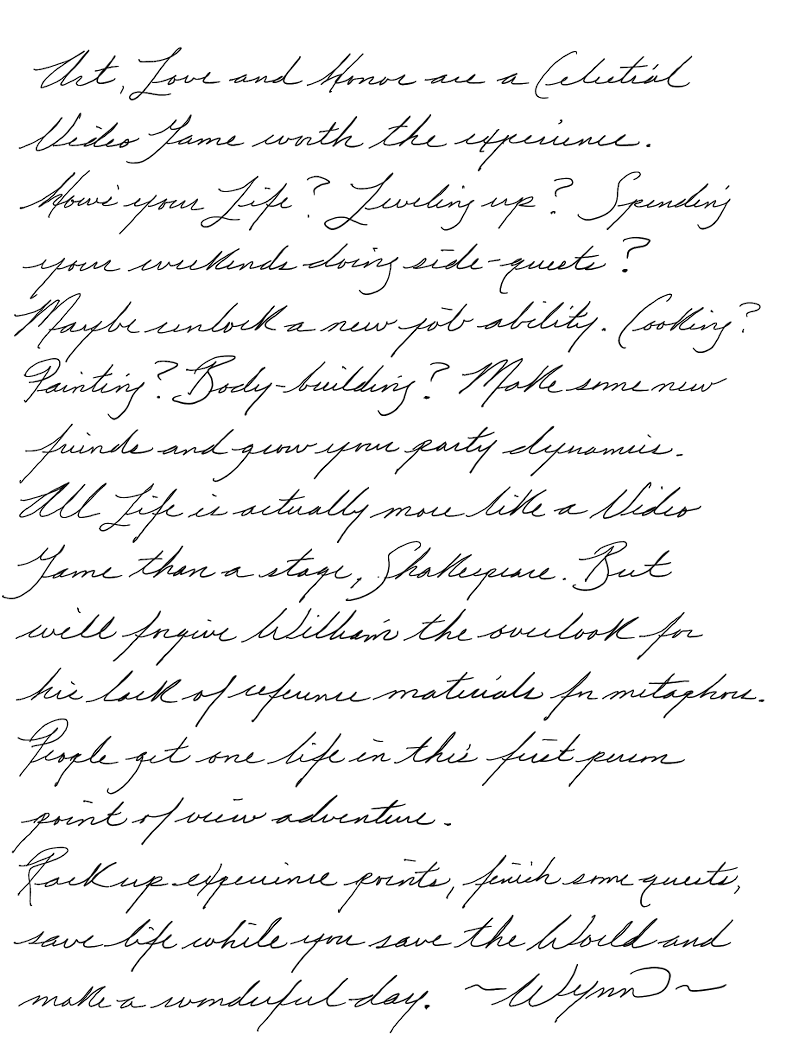 Art, Love and Honor are a Celestial
Video Game worth the experience.
How's your Life? Leveling up? Spending
your weekends doing side-quests?
Maybe unlock a new job ability. Cooking?
Painting? Body-building? Make some new
friends and grow your party dynamics.
All Life is actually more like a Video
Game than a stage, Shakespeare. But
we'll forgive William the overlook for
his lack of reference materials for metaphors.
People get one life in this first person
point of view adventure.
Rack up experience points, finish some quests,
save life while you save the World and
make a wonderful day. ~Wynn~